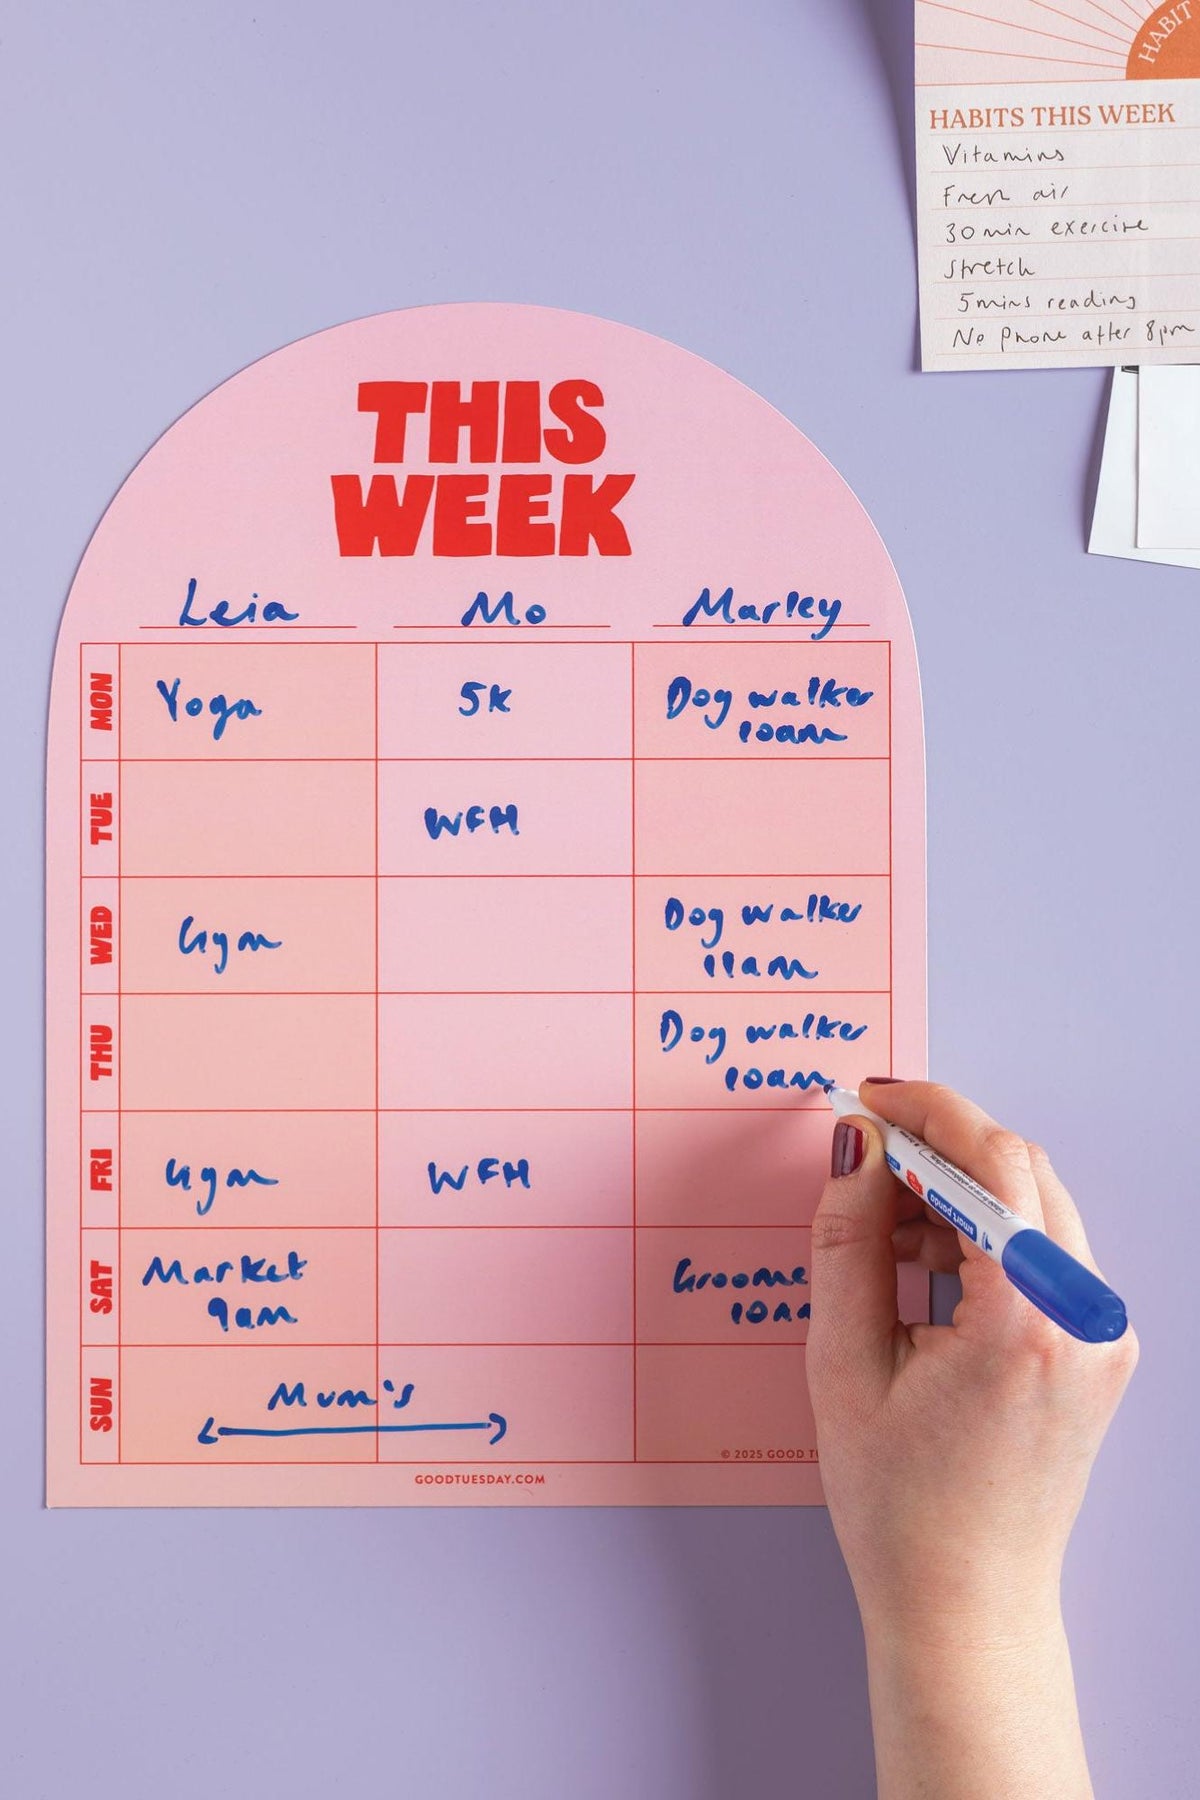 HABIT
HABITS THIS WEEK
Vitamins
Fresh air
30 min exercise
Stretch
5mins reading
No phone after 8pm
THIS
WEEK
Leia Mo Marley
MON Yoga 5K Dog walker
10am
TUE WFH
WED Gym Dog walker
11am
THU Dog walker
10am
FRI Gym WFH
SAT Market Groome
9am 10am
SUN Mum's
© 2025 GOOD TU
GOODTUESDAY.COM
smart panda